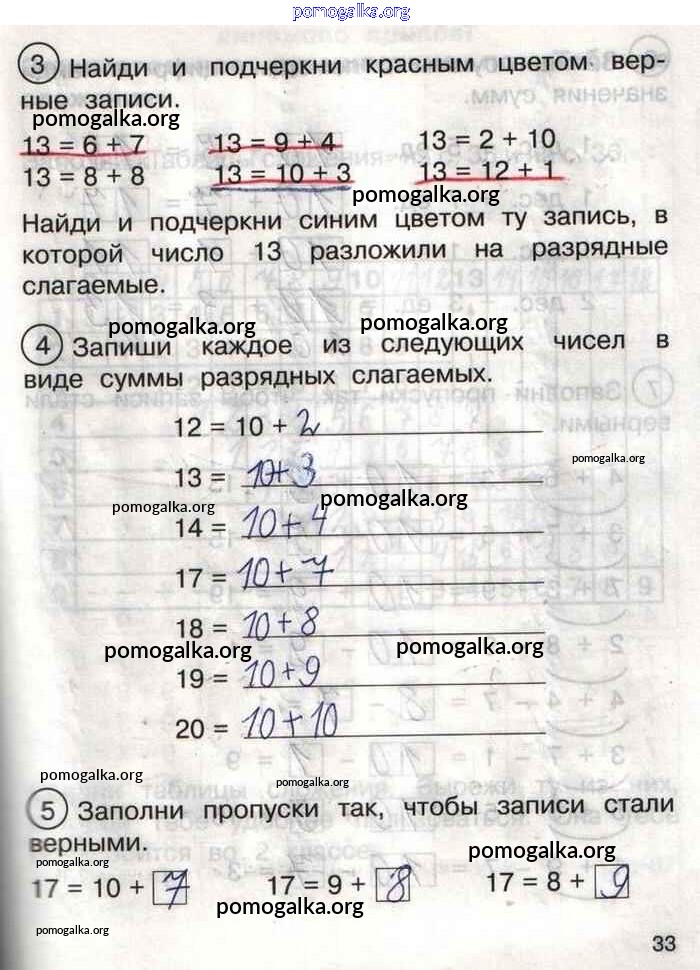 pomogalka.org
3 Найди и подчеркни красным цветом вер-
ные записи.
pomogalka.org
13 = 6 + 7 13 = 9 + 4 13 = 2 + 10
13 = 8 + 8 13 = 10 + 3 13 = 12 + 1
pomogalka.org
Найди и подчеркни синим цветом ту запись, в
которой число 13 разложили на разрядные
слагаемые.
pomogalka.org pomogalka.org
4 Запиши каждое из следующих чисел в
виде суммы разрядных слагаемых.
12 = 10 + 2
pomogalka.org
13 = 10+3
pomogalka.org pomogalka.org
14 = 10+4
17 = 10+7
18 = 10+8
pomogalka.org pomogalka.org
19 = 10+9
20 = 10+10
pomogalka.org pomogalka.org
5 Заполни пропуски так, чтобы записи стали
верными.
pomogalka.org pomogalka.org
17 = 10 + 7 17 = 9 + 8 17 = 8 + 9
pomogalka.org
pomogalka.org
33